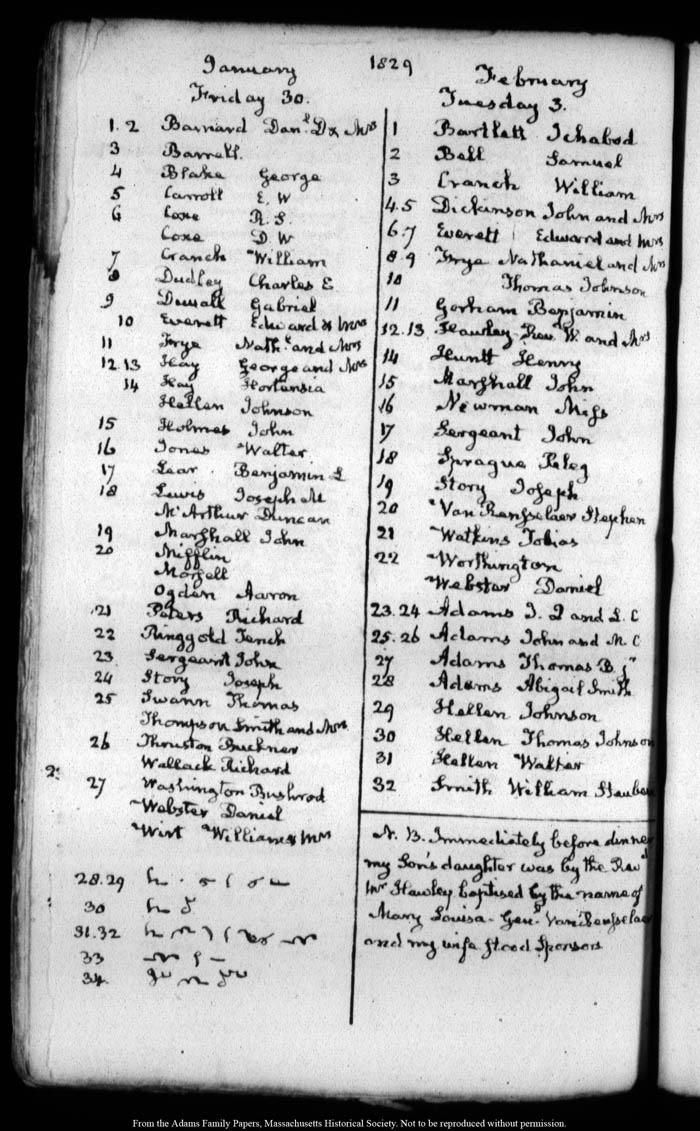 1829
January
Friday 30.
1.2 Barnard Danl. D & Mrs
3 Barrell.
4 Blake George
5 Carroll E. W
6 Coxe R. S.
Coxe D. W
7 Cranch William
8 Dudley Charles E.
9 Duvall Gabriel
10 Everett Edward & Mrs
11 Frye Nathl. and Mrs
12.13 Hay George and Mrs
14 Hay Hortensia
Hellen Johnson
15 Holmes John
16 Jones Walter
17 Lear. Benjamin L
18 Lewis Joseph M
McArthur Duncan
19 Marshall John
20 Mifflin
Morfell
Ogden Aaron
21 Peters Richard
22 Ringgold Tench
23 Sergeant John
24 Story Joseph
25 Swann Thomas
Thompson Smith and Mrs
26 Thruston Buckner
Wallack Richard
27 Washington Bushrod
Webster Daniel
Wirt William & Mrs
28.29
30
31.32
33
34.
February
Tuesday 3.
1 Bartlett Ichabod
2 Bell Samuel
3 Cranch William
4.5 Dickinson John and Mrs
6.7 Everett Edward and Mrs
8.9 Frye Nathaniel and Mrs
10 Thomas Johnson
11 Gorham Benjamin
12.13 Hawley Revd. W and Mrs
14 Huntt Henry
15 Marshall John
16 Newman Miss
17 Sergeant John
18 Sprague Peleg
19 Story Joseph
20 Van Rensselaer Stephen
21 Watkins Tobias
22 Worthington
Webster Daniel
23.24 Adams J. Q and L. C
25.26 Adams John and M. C
27 Adams Thomas B Jr
28 Adams Abigail Smith
29 Hellen Johnson
30 Hellen Thomas Johnson
31 Hellen Walter
32 Smith William Steuben
N. B. Immediately before dinner
my Son's daughter was by the Revd
Mr Hawley baptised by the name of
Mary Louisa - Genl. Van Rensselaer
and my wife stood Sponsors
From the Adams Family Papers, Massachusetts Historical Society. Not to be reproduced without permission.